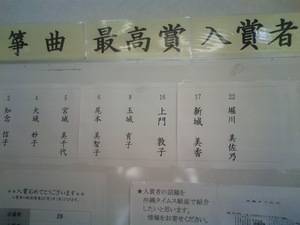 箏曲 最高賞 入賞者
22 堀川 美佐乃
17 新城 美香
16 上門 敦子
8 玉城 育子
6 尾本 美智子
5 宮城 美千代
4 大城 妙子
3 知念 信子
**入賞おめでとうございます**
★入賞者の話題を
沖縄タイムス紙面で紹介
したいと思います。
情報をお寄せください。
26